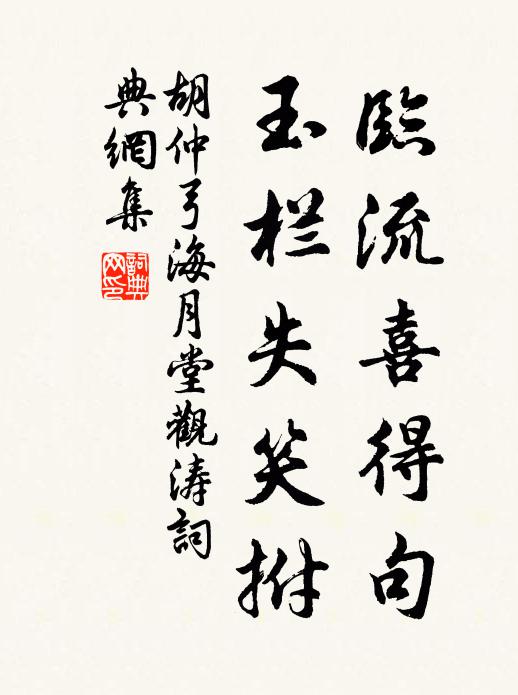 臨流喜得句
玉栏失笑拊
胡仲弓海月堂觀涛詞
典網集
詞典
网印